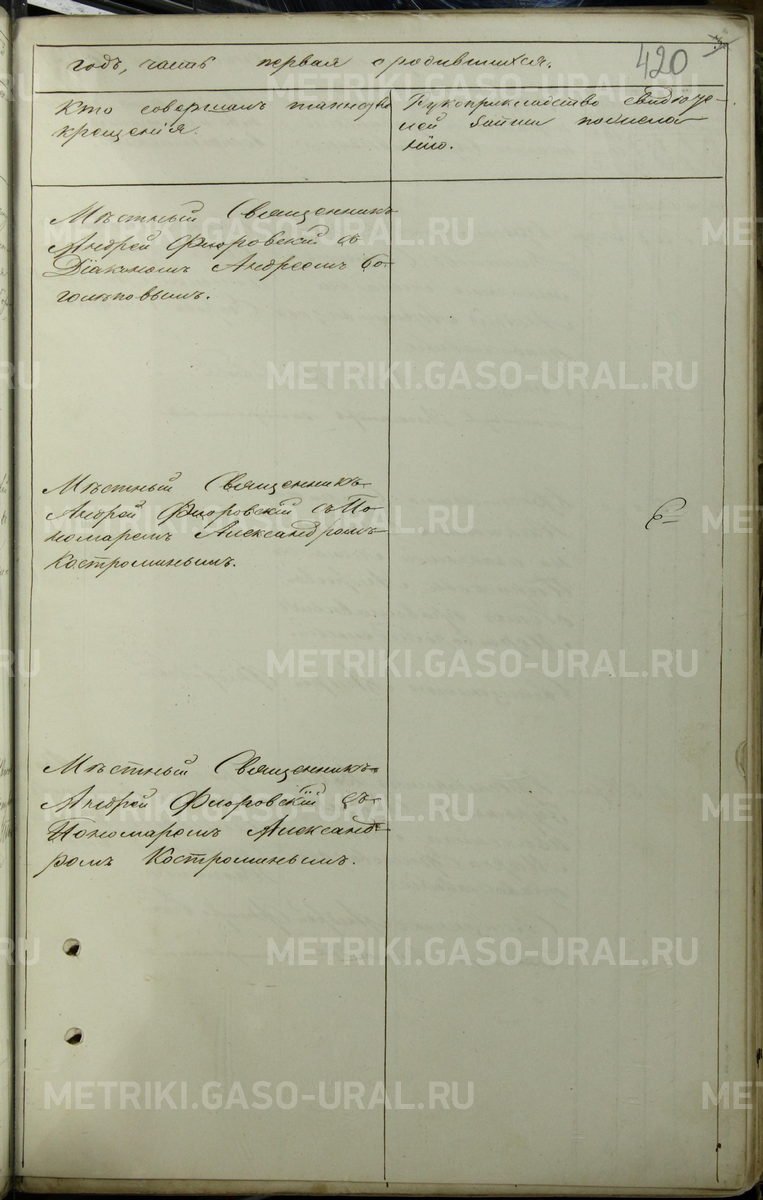 420
годъ, часть первая о родившихся.
Кто совершалъ таинство
крещенія.
Рукоприкладство свидѣте-
лей записи по желa-
нію.
Мѣстный Священникъ
Андрей Флоровскій съ
Діакономъ Андреемъ Бо-
голѣповымъ.
Мѣстный Священникъ
Андрей Флоровскій съ По-
номаремъ Александромъ
Костроминымъ.
Мѣстный Священникъ
Андрей Флоровскій съ
Пономаремъ Александ-
ромъ Костроминымъ.
METRIKI.GASO-URAL.RU